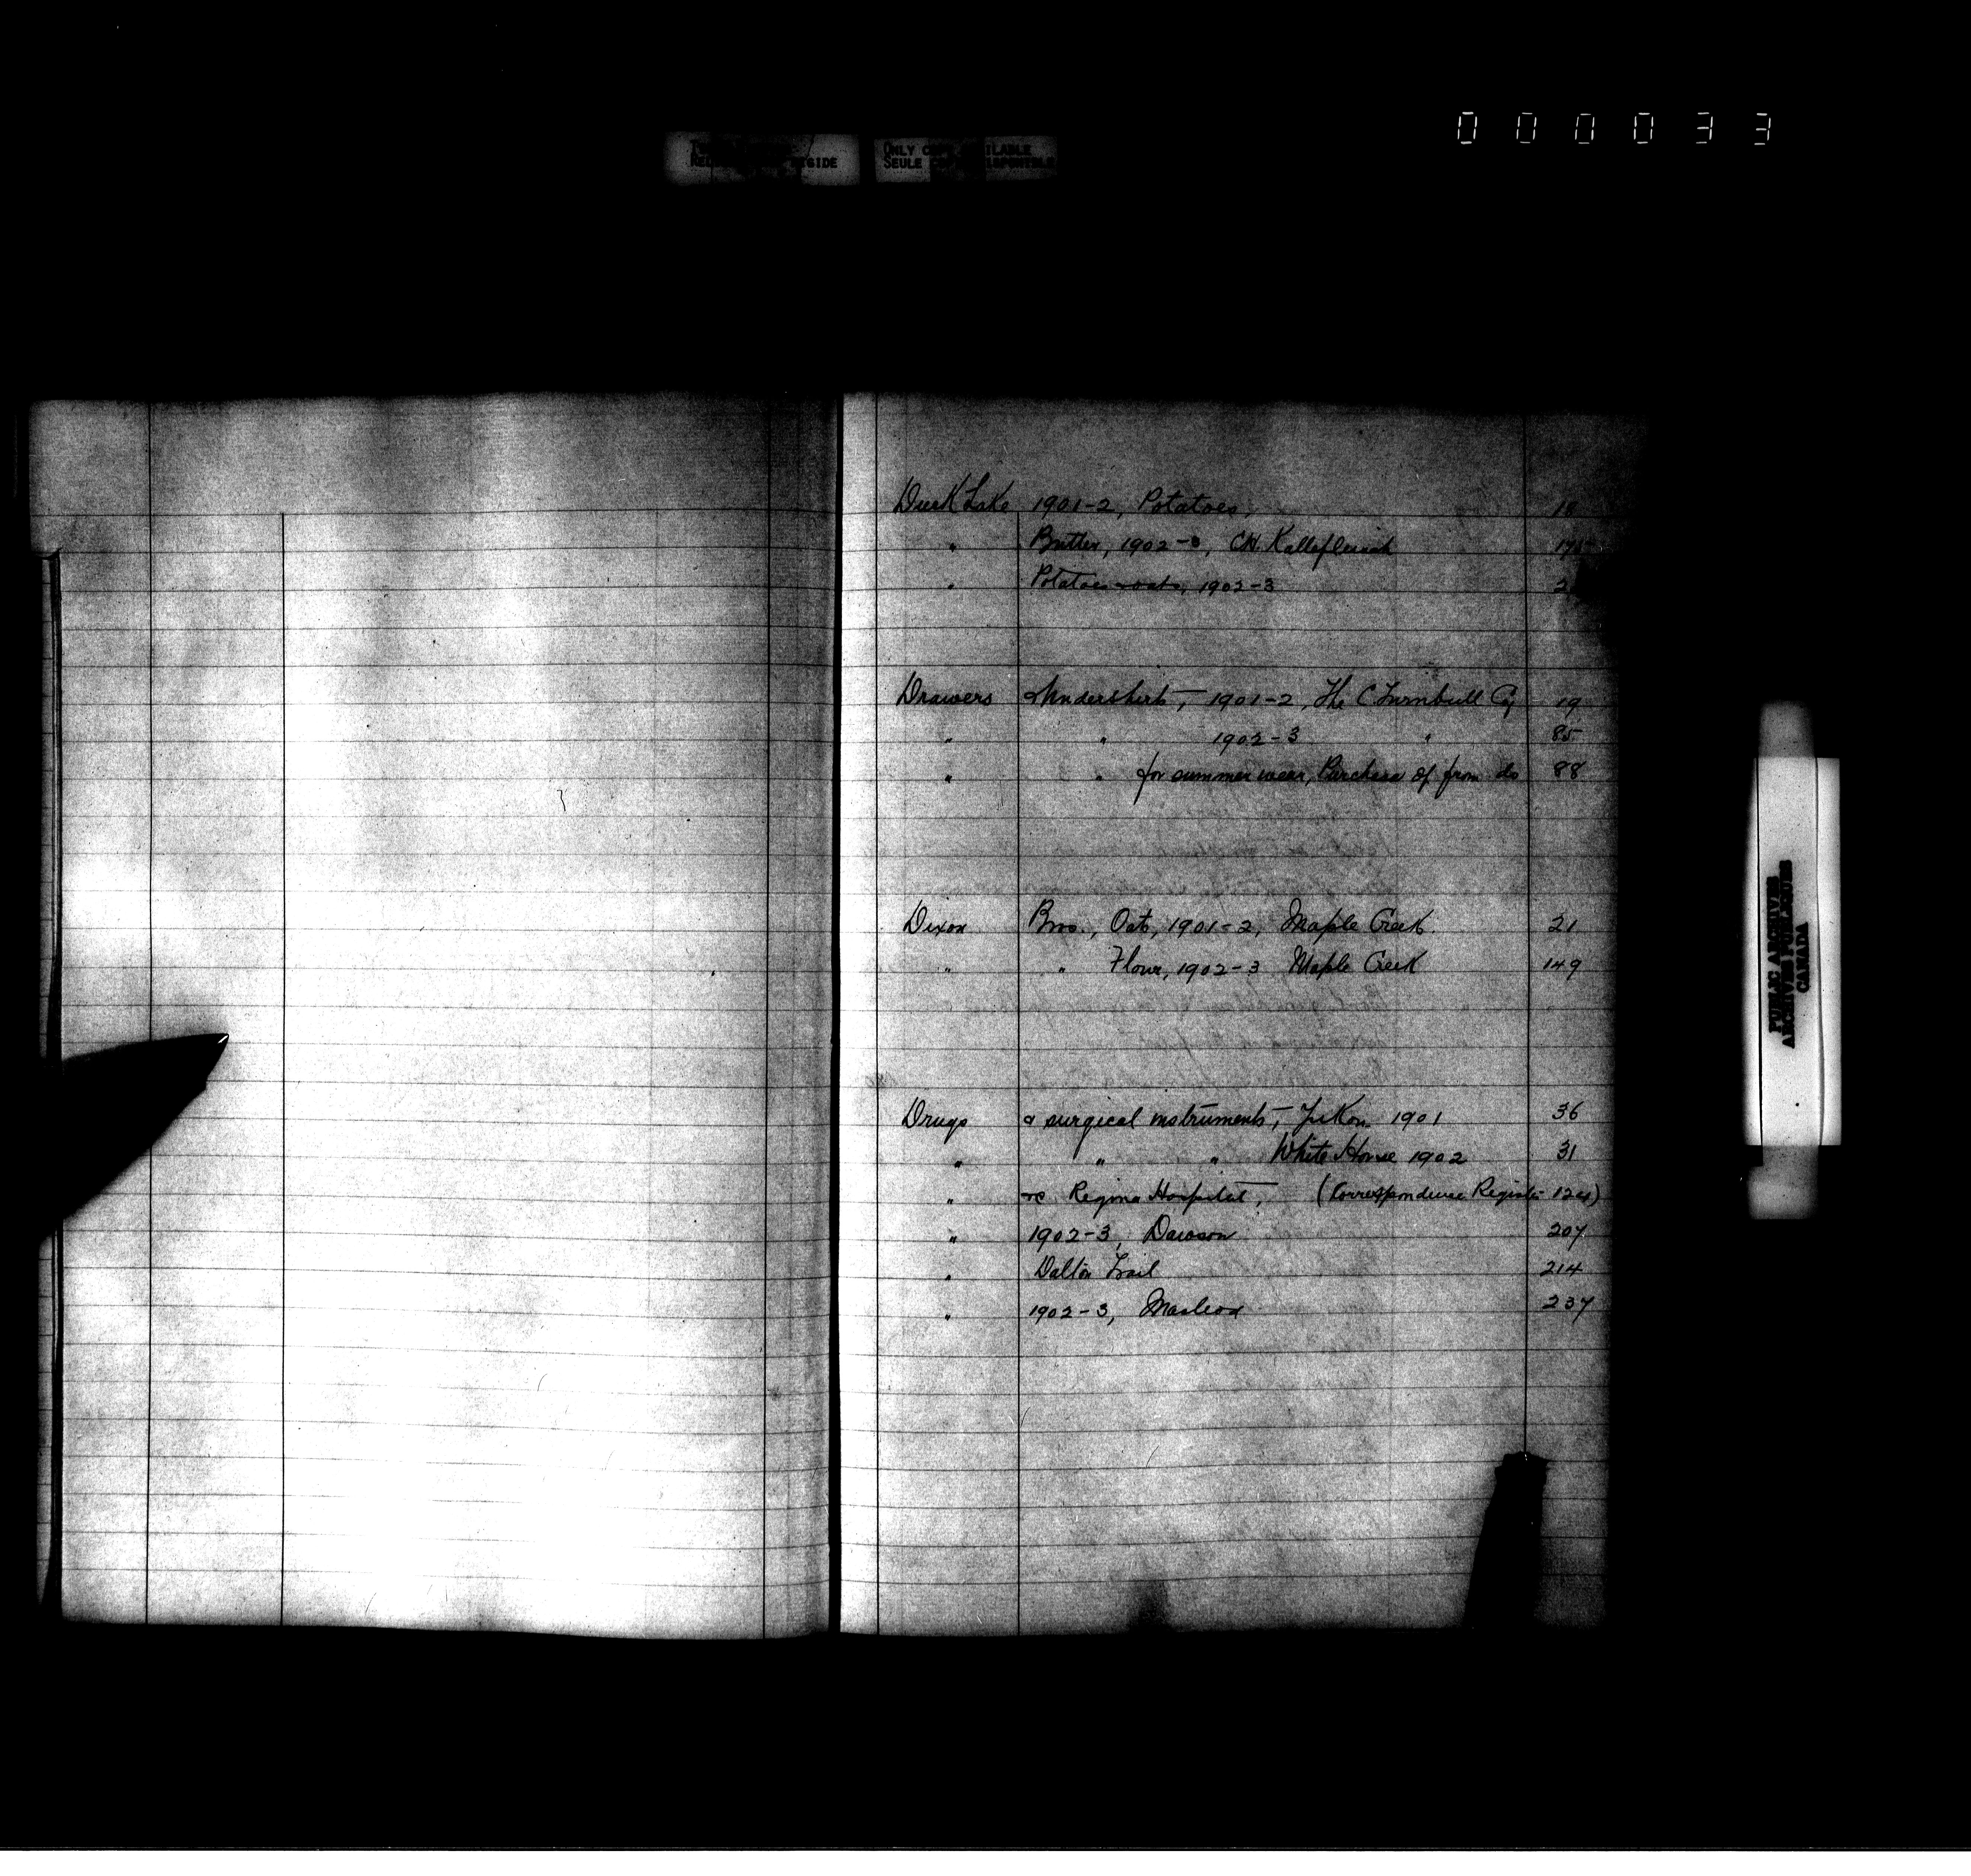 000033
ONLY COPY AVAILABLE
SEULE COPIE DISPONIBLE
Duck Lake 1901-2, Potatoes, 18
" Butter, 1902-3, CH. Kalbfleisch
" Potatoes & oats, 1902-3
Drawers & Undershirts, 1901-2, The C Turnbull Co, 19
" " 1902-3 " 85
" " for summer wear, Purchase of from do 88
Dixon Bros., Oats, 1901-2, Maple Creek. 21
" " Flour, 1902-3 Maple Creek 149
Drugs & surgical instruments, Yukon 1901 36
" " " White Horse 1902 31
" re Regina Hospital, (Correspondence Register 124)
" 1902-3, Dawson 207
" Dalton Trail 214
" 1902-3, Macleod 237
PUBLIC ARCHIVES
ARCHIVES PUBLIQUES
CANADA